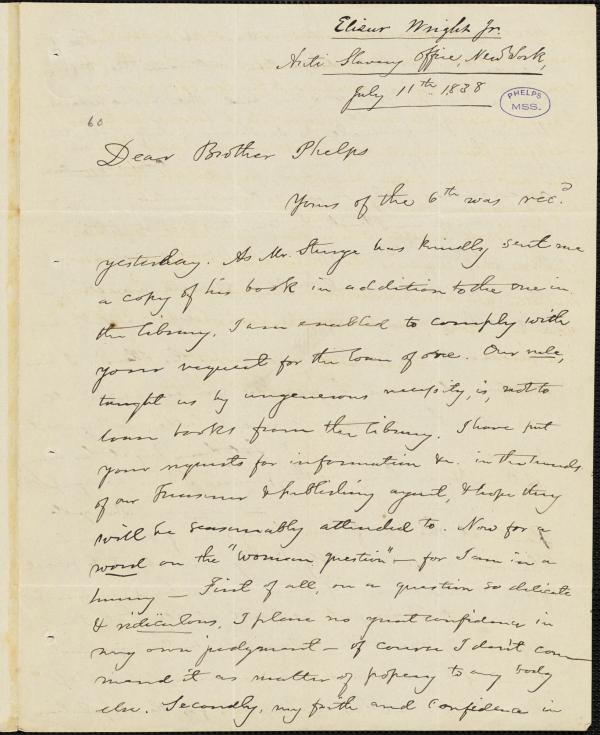 Elizur Wright Jr.
Anti Slavery Office, New York,
July 11th 1838
PHELPS
MSS.
60
Dear Brother Phelps
Yours of the 6th was recd.
yesterday. As Mr. Sturge has kindly sent me
a copy of his book in addition to the one in
the library, I am enabled to comply with
your request for the loan of one. Our rule,
taught us by ungenerous necessity, is, not to
loan books from the library. I have put
your requests for information &c. in the hands
of our Treasurer & publishing agent, & hope they
will be seasonably attended to. Now for a
word on the "woman question" — for I am in a
hurry — First of all, on a question so delicate
& ridiculous, I place no great confidence in
my own judgment — of course I don't com
mend it as matter of to any body
else. Secondly, my faith and confidence in